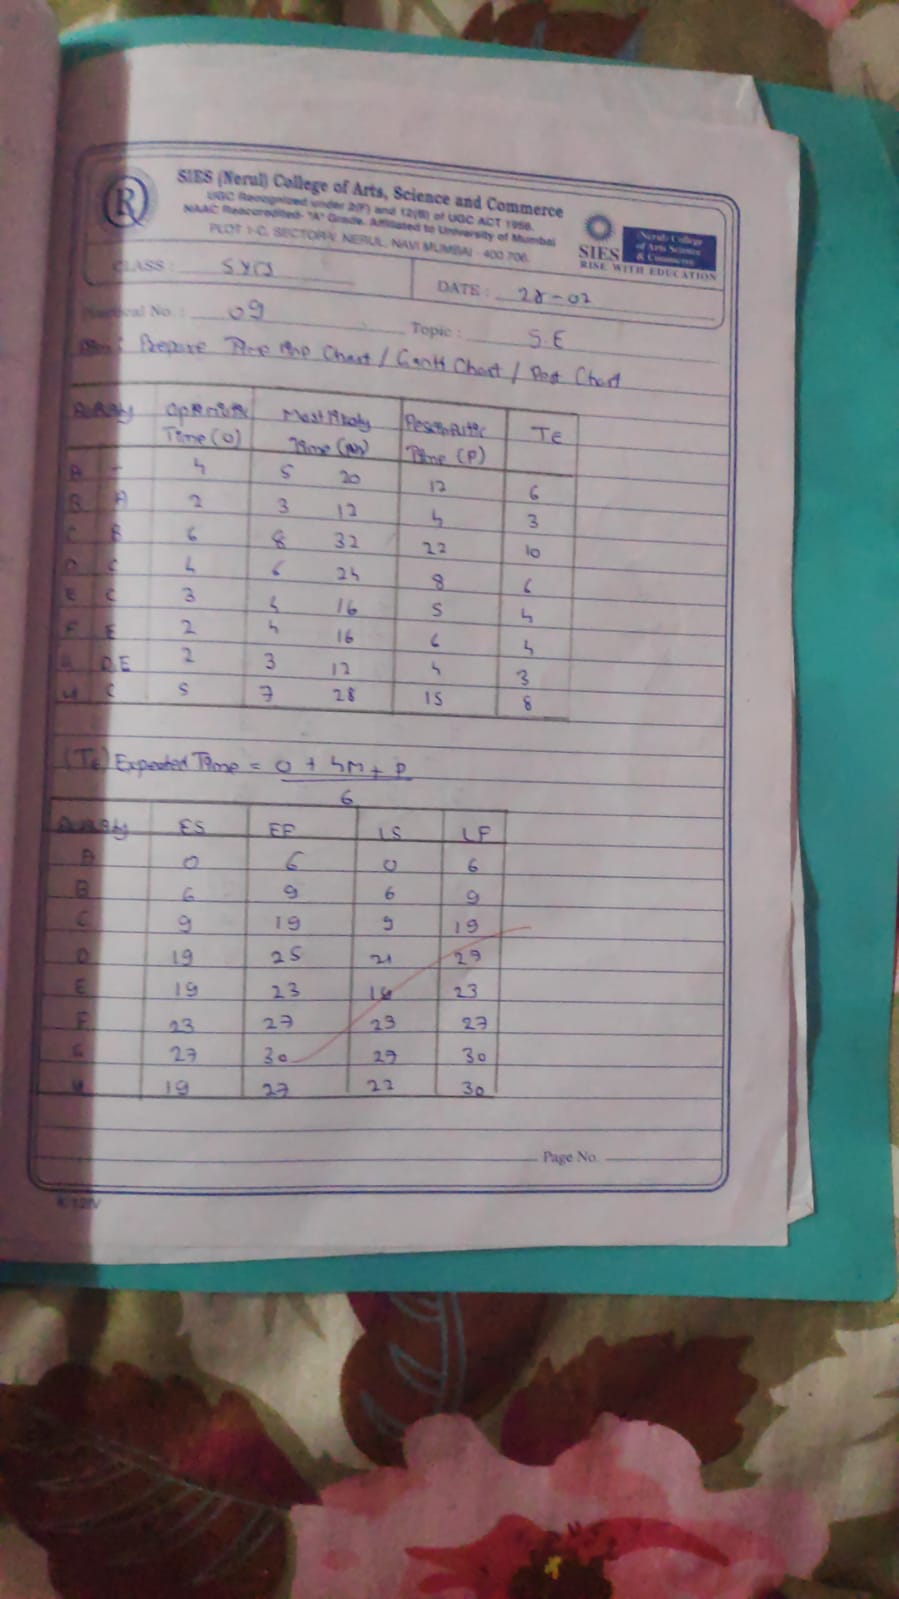 SIES (Nerul) College of Arts, Science and Commerce
UGC Recognized under 2(F) and 12(B) of UGC ACT 1956.
NAAC Reaccredited- "A" Grade. Affiliated to University of Mumbai
PLOT 1-C, SECTOR-V, NERUL, NAVI MUMBAI - 400 706.
R
SIES (Nerul) College of Arts Science & Commerce
RISE WITH EDUCATION
CLASS : DATE : 28-02
Practical No. : 09 Topic : S.E
Aim : Prepare Time Chart / Gantt Chart / Pert Chart
Activity Optimistic Time (O) Most likely Time (M) Pessimistic Time (P) TE
A - 4 5 20 12 6
B A 2 3 12 4 3
C B 6 8 32 22 10
D C 4 6 24 8 6
E C 3 4 16 5 4
F E 2 4 16 6 4
G D,E 2 3 12 4 3
H C 5 7 28 15 8
(TE) Expected Time = O + 4M + P
6
Activity ES EF LS LF
A 0 6 0 6
B 6 9 6 9
C 9 19 9 19
D 19 25 21 27
E 19 23 19 23
F 23 27 23 27
G 27 30 27 30
H 19 27 22 30
Page No.